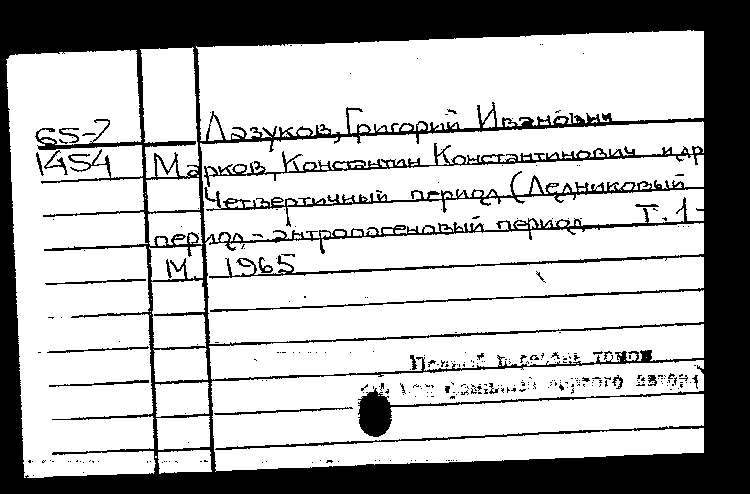 65-7 Лазуков, Григорий Иванович
1454 Марков, Константин Константинович и др
Четвертичный период (Ледниковый
период - антропогеновый период. Т. 1-
М. 1965
Полный перечень томов
см. под фамилией первого автора